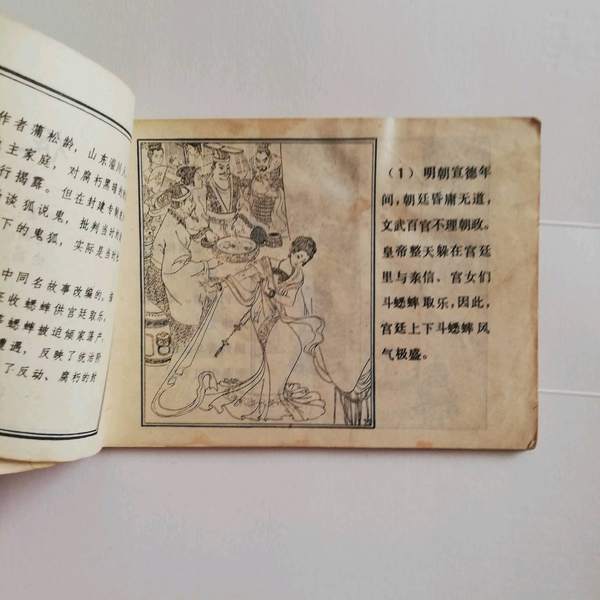 作者蒲松龄,山东淄川
主家庭,对腐朽黑暗的
行揭露。但在封建专制
谈狐说鬼,批判当时的
下的鬼狐,实际是当
中同名故事改编的,
收蟋蟀供宫廷取乐,
蟋蟀被迫倾家荡产,
遭遇,反映了统治阶
了反动、腐朽的封
(1)明朝宣德年
间,朝廷昏庸无道,
文武百官不理朝政。
皇帝整天躲在宫廷
里与亲信、宫女们
斗蟋蟀取乐,因此,
宫廷上下斗蟋蟀风
气极盛。